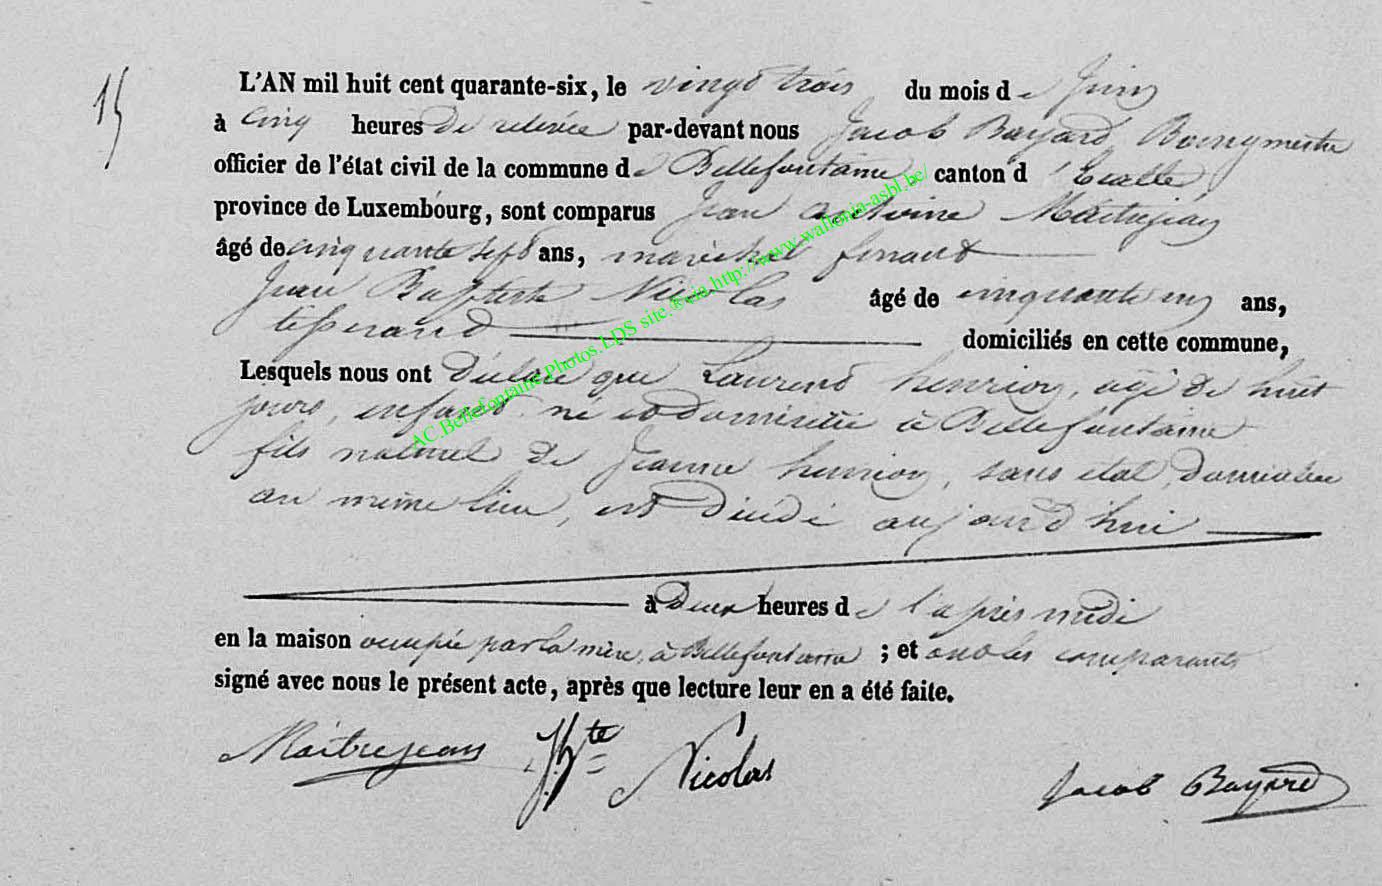 15
L'AN mil huit cent quarante-six, le vingt trois du mois de Juin
à cinq heures de relevée par-devant nous Jacob Bayard Bourgmestre
officier de l'état civil de la commune de Bellefontaine canton d'Etalle,
province de Luxembourg, sont comparus Jean Antoine Maitrejean
âgé de cinquante sept ans, maréchal ferrant
Jean Baptiste Nicolas âgé de cinquante un ans,
tisserand domiciliés en cette commune,
Lesquels nous ont déclaré que Laurent henrion, âgé de huit
jours, enfant né et domicilié à Bellefontaine
fils naturel de Jeanne henrion, sans état, domiciliée
au même lieu, est décédé aujourd'hui
à deux heures de l'après midi
en la maison occupée par la mère, à Bellefontaine ; et ont les comparants
signé avec nous le présent acte, après que lecture leur en a été faite.
Maitrejean JBte Nicolas Jacob Bayard
AC.Bellefontaine.Photos.LDS site.®via.http://www.wallonia-asbl.be/